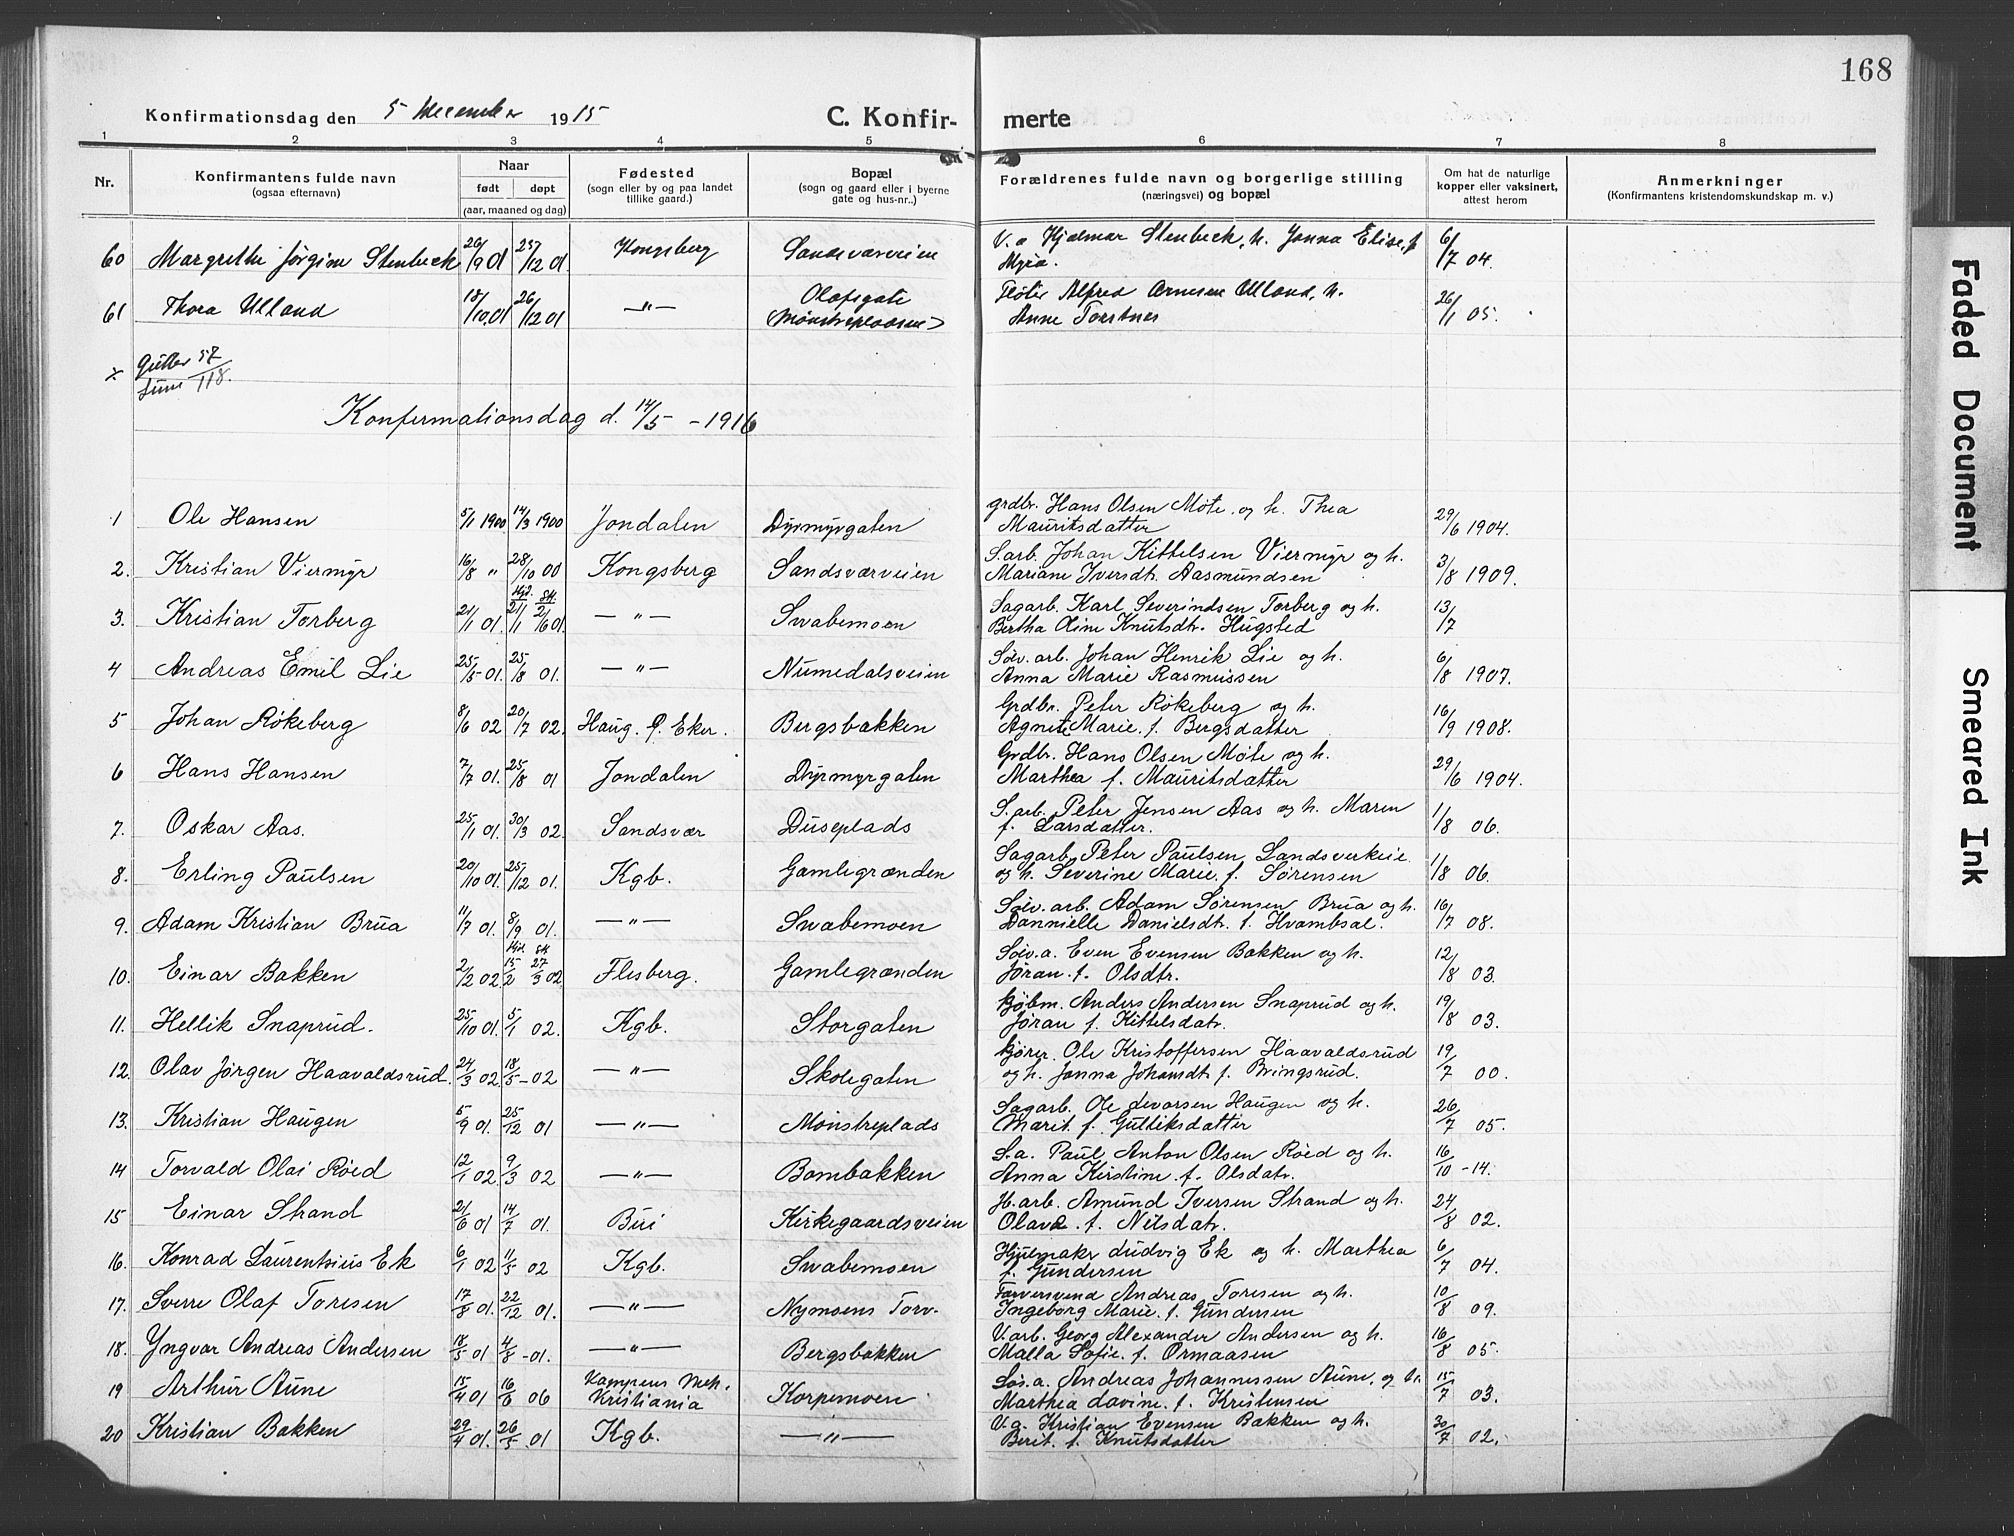 168
Konfirmationsdag den 5 December 1915 C. Konfirmerte
1 2 3 4 5 6 7 8
Nr. Konfirmantens fulde navn (ogsaa efternavn) Naar født døpt (aar, maaned og dag) Fødested (sogn eller by og paa landet tillike gaard.) Bopæl (sogn og gaard eller i byerne gate og hus-nr.) Forældrenes fulde navn og borgerlige stilling (næringsvei) og bopæl Om hat de naturlige kopper eller vaksinert, attest herom Anmerkninger (Konfirmantens kristendomskundskap m. v.)
60 Margrethe Jørgine Stenbeck 20/9 01 25/12 01. Kongsberg Sandsværveien V.a Hjalmar Stenbeck, h. Janna Elise, f. Myra. 6/7 04.
61 Thora Ulland 18/10.01 26/12 01 —"— Olafsgate (Mønstrepladsen) Fløter Alfred Arnesen Ulland, h. Anne Torstnes 26/1 05.
× Gutter 57
118.
Konfirmationsdag d. 14/5 - 1916
1 Ole Hansen 5/1 1900 14/3 1900 Jondalen Dyrmyrgaten grdbr. Hans Olsen Møte, og h. Thea Mauritsdatter 29/6 1904.
2. Kristian Viermyr 16/8 " 28/10 00 Kongsberg Sandsværveien S.arb. Johan Kittelsen Viermyr og h. Mariane Iversdtr. Aasmundsen 3/8 1909.
3. Kristian Torberg 21/1 01. Hjd. 21/1 st. 2/6 01. —"— Svabemoen Sagarb. Karl Severindsen Torberg og h. Bertha Oline Knutsdtr. Hugsted 13/7
4 Andreas Emil Lie 25/5-01. 25/8 01. —"— Numedalsveien Sølv.arb. Johan Henrik Lie og h. Anna Marie Rasmussen 6/8 1907.
5 Johan Røkeberg 8/6 02 20/7 02. Haug. P. Eker. Bergsbakken Grdbr. Peter Røkeberg og h. Agnete Marie. f. Bergsdatter 16/9 1908.
6 Hans Hansen 7/7 01. 25/8 01 Jondalen Dyrmyrgaten Grdbr. Hans Olsen Møte og h. Marthea f. Mauritsdatter 29/6 1904.
7. Oskar Aas. 25/1 01. 30/3 02. Sandsvær Duseplads S.arb. Peter Jensen Aas og h. Maren f. Larsdatter. 1/8 06.
8. Erling Paulsen 20/10 01. 25/12 01. Kgb. Gamlegrænden Sagarb. Peter Paulsen Landsverkeie. og h. Severine Marie. f. Sørensen 1/8 06.
9. Adam Kristian Brua 11/7 01. 8/9 01. —"— Svabemoen Sølv.arb. Adam Sørensen Brua og h. Dannielle Danielsdt. f. Hvambsal. 16/7 08.
10. Einar Bakken 2/2 02. Hjd. 15/2 st 27/3 02. Flesberg. Gamlegrænden Sølv.a. Even Evensen Bakken og h. Jøran. f. Olsdtr. 12/8 03.
11. Hellik Snaprud. 25/10 01. 5/1 02. Kgb. Storgaten kjøbm. Anders Andersen Snaprud og h. Jøran f. Kittelsdatr. 19/8 03.
12. Olav Jørgen Haavaldsrud. 24/3 02. 18/5-02 —"— Skolegaten kjører. Ole Kristoffersen Haavaldsrud og h. Janna Johansdt. f. Bringsrud. 19/7 00.
13. Kristian Haugen 5/9 01. 25/12 01 —"— Mønstreplads Sagarb. Ole Levorsen Haugen og h. Marit. f. Gulliksdatter 26/7 05.
14 Torvald Olai Røed 12/1 02 9/3 02 —"— Bombakken S.a. Paul Anton Olsen Røed og h. Anna Kirstine. f. Olsdatr. 16/10-14.
15 Einar Strand 21/6 01 14/7 01. Biri Kirkegaardsveien H.arb. Amund Iversen Strand og h. Olava. f. Nilsdatr. 24/8 02.
16. Konrad Laurentsius Ek 6/1 02 11/5 02 Kgb. Svabemoen Hjulmakr Ludvig Ek og h. Marthea f. Gundersen 6/7 04.
17. Sverre Olaf Toresen 17/8 01. 22/12 01. —"— Nymoens Torv. Farversvend Andreas Toresen og h. Ingeborg Marie. f. Gundersen 10/8 09.
18. Yngvar Andreas Andersen 18/5 01 4/8-01. —"— Bergsbakken V.arb. Georg Alexander Andersen og h. Malla Sofie. f. Ormaasen 16/8 05.
19 Arthur Aune 15/4 01 16/6 06 Kampens Meh. Kristiania Korpemoen Søs.a. Andreas Johannessen Aune, og h. Marthea Lavine. f. Kristensen 15/7 03.
20 Kristian Bakken 29/4 01. 26/5 01 Kgb. —"— V.a. Kristian Evensen Bakken og h. Berit. f. Knutsdatter 30/7 02.
Faded Document
Smeared Ink